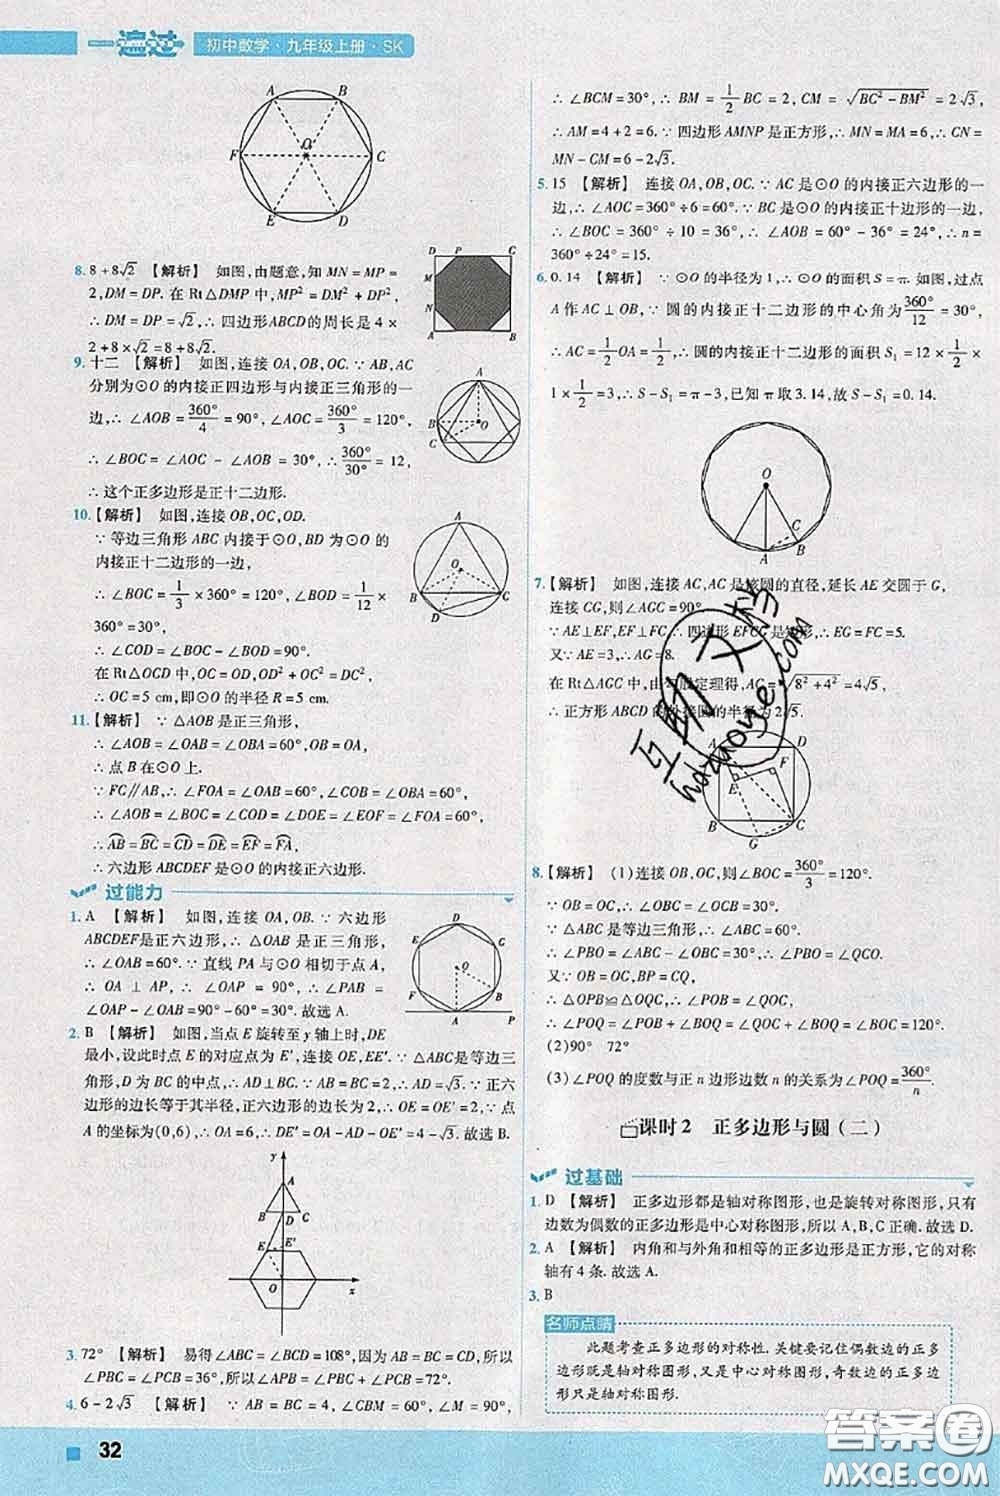 一遍过 初中数学·九年级上册·SK
A B F O C E D
8. 8+8√2 【解析】 如图,由题意,知 MN=MP=
2,DM=DP. 在 Rt△DMP 中,MP²=DM²+DP²,
∴ DM=DP=√2,∴ 四边形ABCD的周长是 4×
2+8×√2=8+8√2.
D P C M N A B
9. 十二 【解析】 如图,连接 OA,OB,OC. ∵ AB,AC
分别为⊙O 的内接正四边形与内接正三角形的一
边,∴ ∠AOB=360°/4=90°, ∠AOC=360°/3=120°,
∴ ∠BOC=∠AOC-∠AOB=30°,∴ 360°/30°=12,
∴ 这个正多边形是正十二边形.
A B O C
10. 【解析】 如图,连接 OB,OC,OD.
∵ 等边三角形 ABC 内接于⊙O,BD 为⊙O 的
内接正十二边形的一边,
∴ ∠BOC=1/3×360°=120°,∠BOD=1/12×
360°=30°,
∴ ∠COD=∠BOC-∠BOD=90°.
在 Rt△OCD 中,OC=OD,OC²+OD²=CD²,
∴ OC=5 cm,即⊙O 的半径 R=5 cm.
A O B C D
11. 【解析】 ∵ △AOB 是正三角形,
∴ ∠AOB=∠OAB=∠OBA=60°,OB=OA,
∴ 点 B 在⊙O 上.
∵ FC∥AB,∴ ∠FOA=∠OAB=60°,
∴ ∠AOB=∠BOC=∠COD=∠DOE=∠EOF=
∠FOA=60°,
∴ AB=BC=CD=DE=EF=FA,
∴ 六边形 ABCDEF 是⊙O 的内接正六边形.
过能力
1. A 【解析】 如图,连接 OA,OB. ∵ 六边形
ABCDEF是正六边形,∴ △OAB 是正三角形,
∴ ∠OAB=60°. ∵ 直线 PA 与⊙O 相切于点 A,
∴ OA⊥AP,∴ ∠OAP=90°,∴ ∠PAB=
∠OAP-∠OAB=90°-60°=30°. 故选 A.
D E C O F B A P
2. B 【解析】 如图,当点 E 旋转至 y 轴上时,DE
最小,设此时点 E 的对应点为 E′,连接 OE,EE′. ∵ △ABC是等边三
角形,D 为 BC 的中点,∴ AD⊥BC. ∵ AB=BC=2,∴ AD=√3. ∵ 正六
边形的边长等于其半径,正六边形的边长为 2,∴ OE=OE′=2. ∵ 点
A 的坐标为(0,6),∴ OA=6,∴ DE′=OA-AD-OE′=4-√3. 故选 B.
y A B D C E E′ O x
3. 72° 【解析】 易得∠ABC=∠BCD=108°,因为 AB=BC=CD,所以
∠PBC=∠PCB=36°,所以∠APB=∠PBC+∠PCB=72°.
4. 6-2√3 【解析】 ∵ AB=BC=4,∠CBM=60°,∠M=90°,
∴ ∠BCM=30°,∴ BM=1/2 BC=2,CM=√(BC²-BM²)=2√3,
∴ AM=4+2=6. ∵ 四边形 AMNP 是正方形,∴ MN=MA=6,∴ CN=
MN-CM=6-2√3.
5. 15 【解析】 连接 OA,OB,OC. ∵ AC 是⊙O 的内接正六边形的一
边,∴ ∠AOC=360°÷6=60°. ∵ BC 是⊙O 的内接正十边形的一边,
∴ ∠BOC=360°÷10=36°,∴ ∠AOB=60°-36°=24°,∴ n=
360°÷24°=15.
6. 0.14 【解析】 ∵ ⊙O 的半径为 1,∴ ⊙O 的面积 S=π. 如图,过点
A 作 AC⊥OB,∵ 圆的内接正十二边形的中心角为360°/12=30°,
∴ AC=1/2 OA=1/2,∴ 圆的内接正十二边形的面积 S₁=12×1/2×
1×1/2=3,∴ S-S₁=π-3,已知 π 取 3.14,故 S-S₁=0.14.
O C A B
7. 【解析】 如图,连接 AC,AC 是该圆的直径,延长 AE 交圆于 G,
连接 CG,则∠AGC=90°.
∵ AE⊥EF,EF⊥FC,∴ 四边形 EFCG 是矩形,∴ EG=FC=5.
又∵ AE=3,∴ AG=8.
在 Rt△AGC 中,由勾股定理得,AC=√(8²+4²)=4√5,
∴ 正方形 ABCD 的外接圆的半径为 2√5.
D F E B C G
8. 【解析】 (1)连接 OB,OC,则∠BOC=360°/3=120°.
∵ OB=OC,∴ ∠OBC=∠OCB=30°.
∵ △ABC 是等边三角形,∴ ∠ABC=60°.
∴ ∠PBO=∠ABC-∠OBC=30°,∴ ∠PBO=∠QCO.
又∵ OB=OC,BP=CQ,
∴ △OPB≌△OQC,∴ ∠POB=∠QOC,
∴ ∠POQ=∠POB+∠BOQ=∠QOC+∠BOQ=∠BOC=120°.
(2)90° 72°
(3)∠POQ 的度数与正 n 边形边数 n 的关系为∠POQ=360°/n.
课时2 正多边形与圆(二)
过基础
1. D 【解析】 正多边形都是轴对称图形,也是旋转对称图形,只有
边数为偶数的正多边形是中心对称图形,所以 A,B,C 正确. 故选 D.
2. A 【解析】 内角和与外角和相等的正多边形是正方形,它的对称
轴有 4 条. 故选 A.
3. B
名师点睛
此题考查正多边形的对称性. 关键要记住偶数边的正多
边形既是轴对称图形,又是中心对称图形,奇数边的正多边
形只是轴对称图形.
32
互助文档
hezuoye.com
答案圈
MXQE.COM